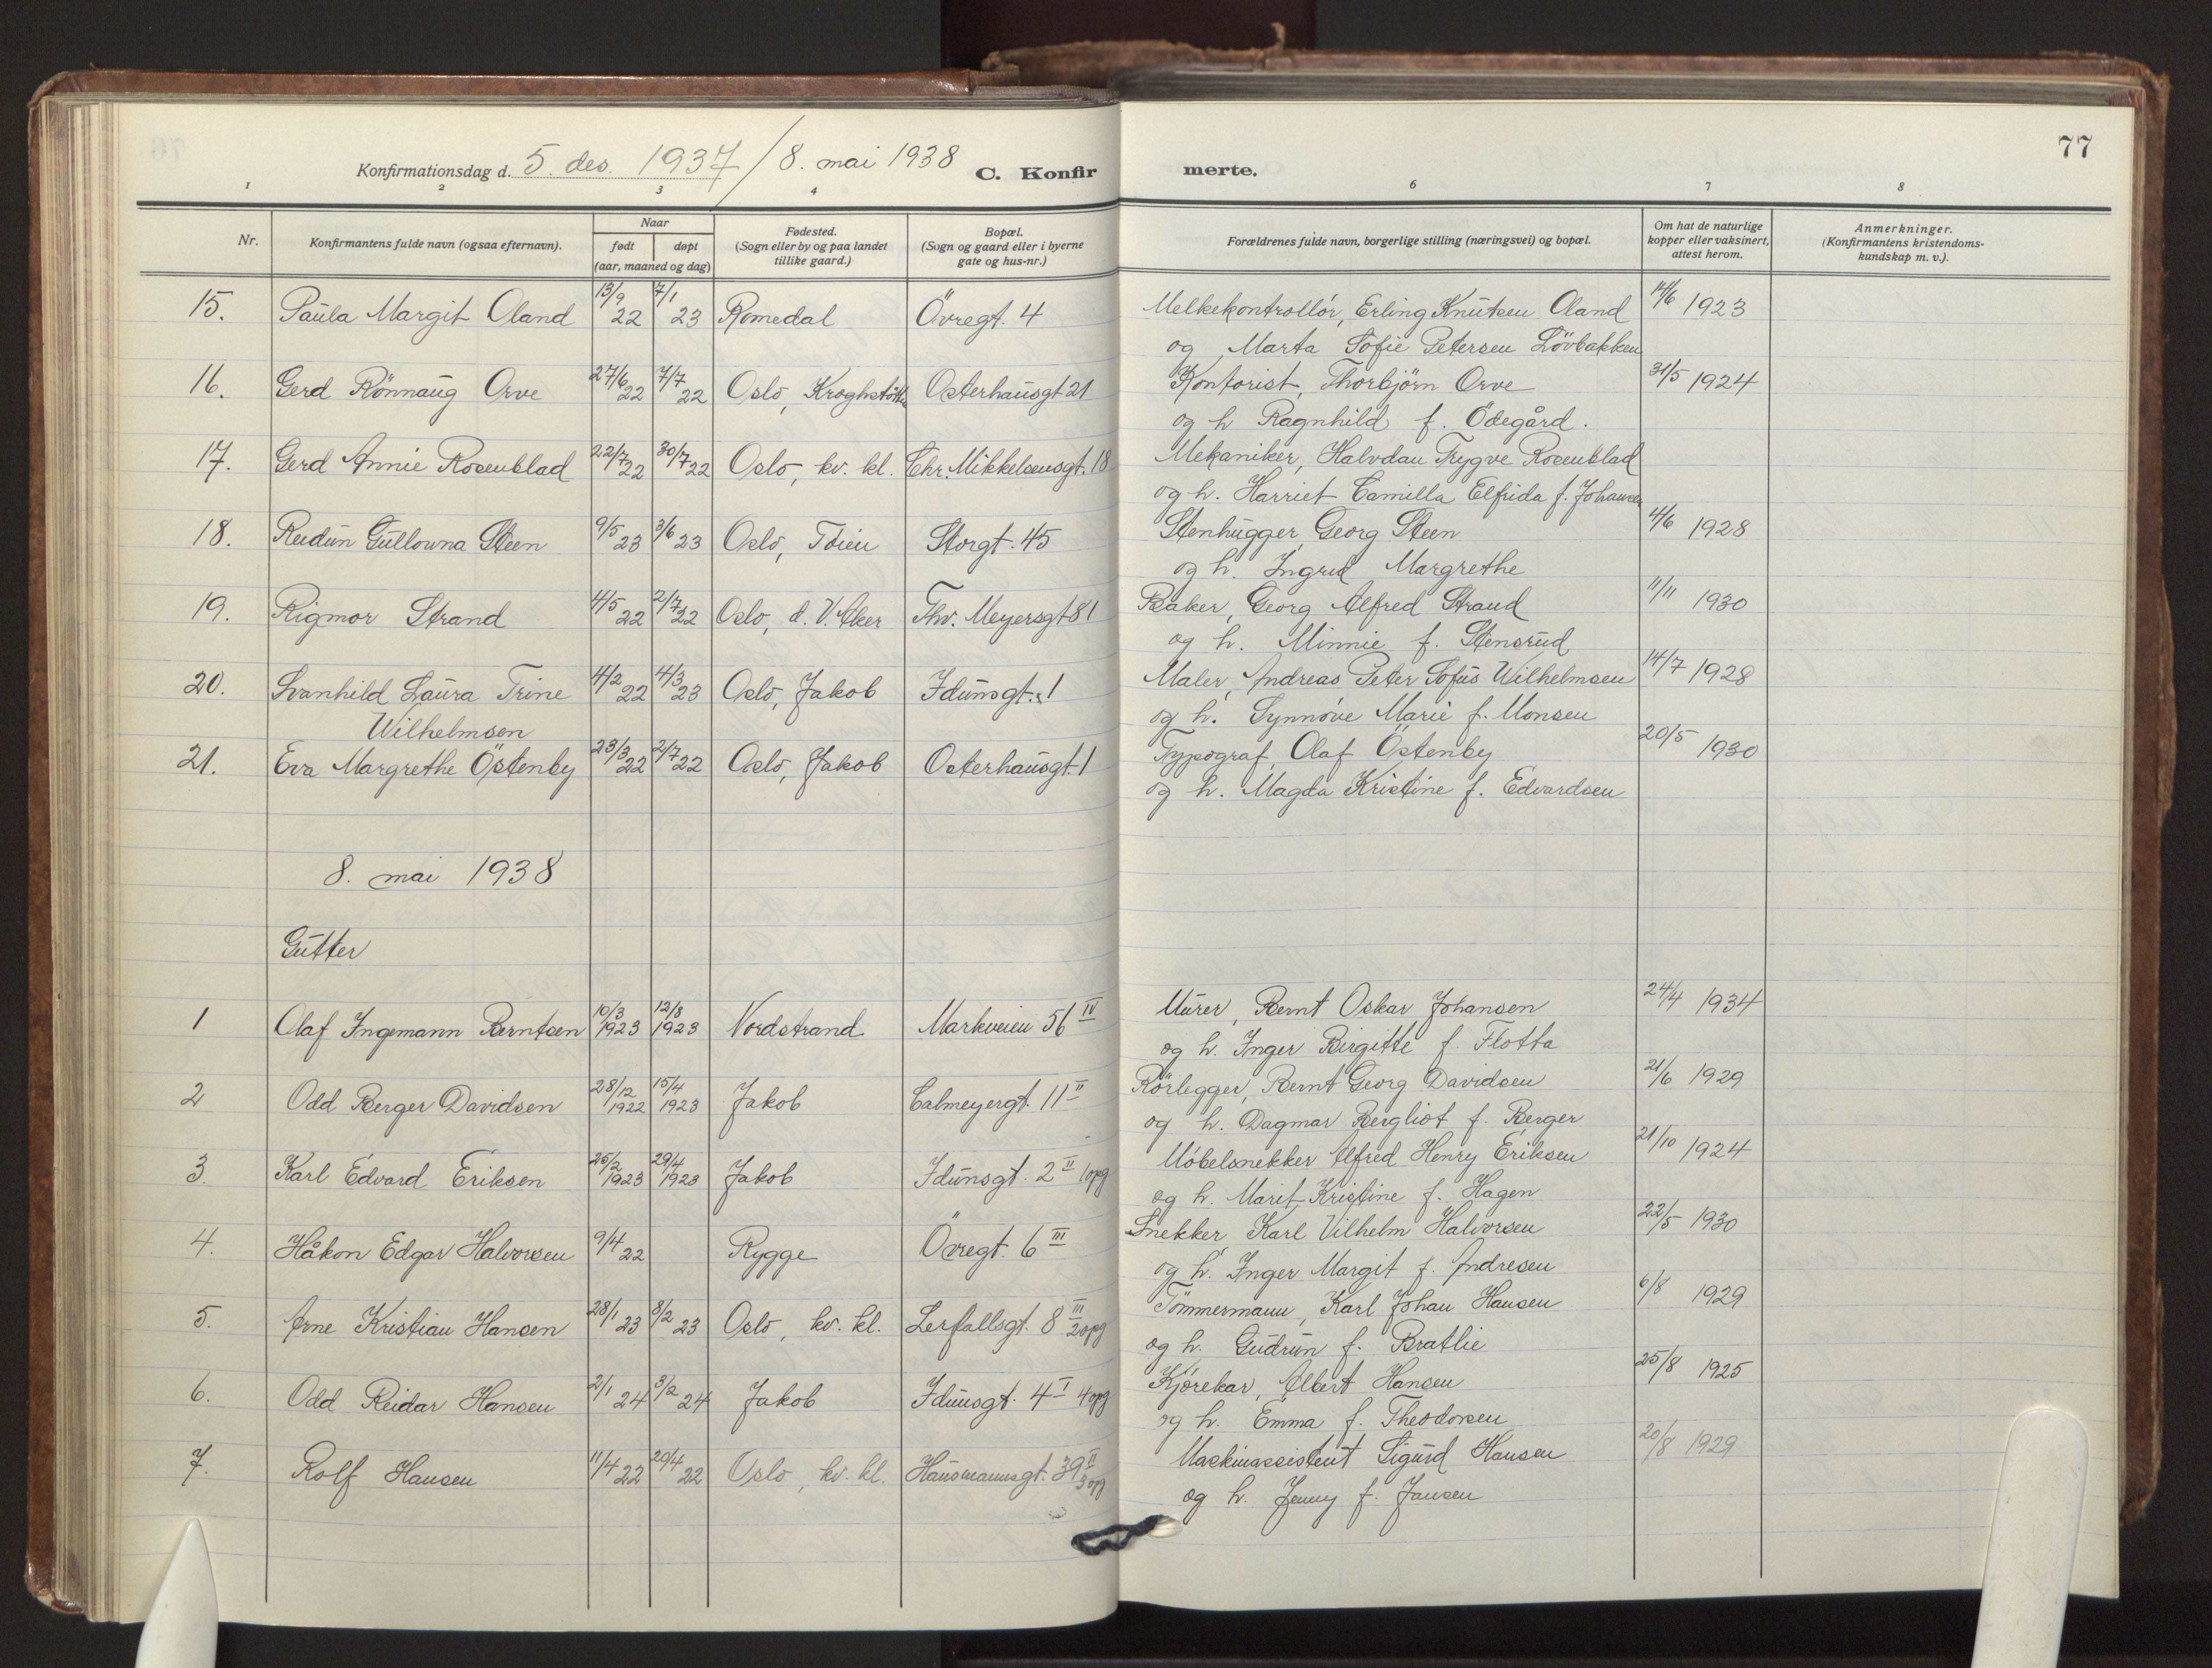 77
Konfirmationsdag d. 5. des. 1937 / 8. mai 1938 C. Konfirmerte.
1 2 3 4 6 7 8
Nr. Konfirmantens fulde navn (ogsaa efternavn). Naar født døpt (aar, maaned og dag) Fødested. (Sogn eller by og paa landet tillike gaard.) Bopæl. (Sogn og gaard eller i byerne gate og hus-nr.) Forældrenes fulde navn, borgerlige stilling (næringsvei) og bopæl. Om hat de naturlige kopper eller vaksinert, attest herom. Anmerkninger. (Konfirmantens kristendomskundskap m. v.).
15. Paula Margit Oland 13/9 22 7/1 23 Romedal Övregt. 4 Melkekontrollör, Erling Knutsen Oland 14/6 1923
og Marta Sofie Petersen Lövbakken
16. Gerd Rönnaug Orve 27/6 22 7/7 22 Oslo, Kroghstötten Osterhausgt 21 Kontorist, Thorbjörn Orve 31/5 1924
og h Ragnhild f. Ödegård.
17. Gerd Annie Rosenblad 22/7 22 30/7 22 Oslo, kv. kl. Chr. Mikkelsensgt. 18 Mekaniker, Halvdan Trygve Rosenblad
og h. Harriet Camilla Elfrida f. Johansen
18. Reidun Gullowna Steen 9/5 23 3/6 23 Oslo, Töien Storgt. 45 Stenhugger, Georg Steen 4/6 1928
og h. Ingrid Margrethe
19. Rigmor Strand 4/5 22 2/7 22 Oslo, d. V. Aker Thv. Meyersgt 81 Baker, Georg Alfred Strand 11/11 1930
og h. Minnie f. Stensrud
20. Svanhild Laura Trine 4/2 22 4/3 23 Oslo, Jakob Idunsgt. 1 Maler, Andreas Peter Sofus Wilhelmsen 14/7 1928
Wilhelmsen og h. Synnöve Marie f. Monsen
21. Eva Margrethe Östenby 23/3 22 2/7 22 Oslo, Jakob Osterhausgt. 1 Typograf, Olaf Östenby 20/5 1930
og h. Magda Kristine f. Edvardsen
8. mai 1938
Gutter
1 Olaf Ingemann Berntsen 10/3 1923 12/8 1923 Nordstrand Markveien 56 IV Murer, Bernt Oskar Johansen 24/4 1934
og h. Inger Birgitte f. Flotta
2 Odd Berger Davidsen 28/12 1922 15/4 1923 Jakob Calmeyergt. 11 II Rörlegger, Bernt Georg Davidsen 21/6 1929
og h. Dagmar Bergliot f. Berger
3. Karl Edvard Eriksen 25/2 1923 29/4 1923 Jakob Idunsgt. 2 II 1 opg Möbelsnekker Alfred Henry Eriksen 21/10 1924
og h. Marit Kristine f. Hagen
4. Håkon Edgar Halvorsen 9/4 22 Rygge Övregt. 6 III Snekker Karl Vilhelm Halvorsen 22/5 1930
og h. Inger Margit f. Andresen
5. Arne Kristian Hansen 28/1 23 8/2 23 Oslo, kv. kl. Lerfallsgt. 8 III 2 opg Tömmermann, Karl Johan Hansen 6/8 1929
og h. Gudrun f. Bratlie
6. Odd Reidar Hansen 2/1 24 3/2 24 Jakob Idunsgt. 4 I 4 opg Kjörekar, Albert Hansen 25/8 1925
og h. Emma f. Theodorsen
7. Rolf Hansen 11/4 22 20/4 22 Oslo, kv. kl. Hausmannsgt. 39 II 3 opg Maskinassistent Sigurd Hansen 20/8 1929
og h. Jenny f. Jansen